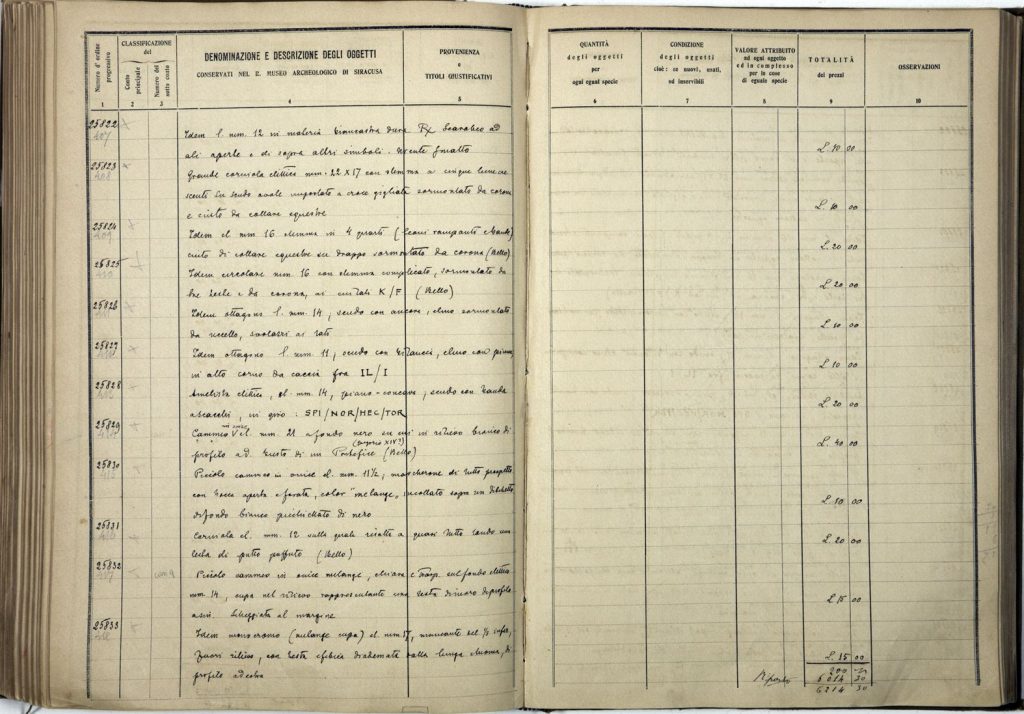 Numero d'ordine progressivo
CLASSIFICAZIONE
del
Conto principale
Numero del sotto conto
DENOMINAZIONE E DESCRIZIONE DEGLI OGGETTI
CONSERVATI NEL R. MUSEO ARCHEOLOGICO DI SIRACUSA
PROVENIENZA
e
TITOLI GIUSTIFICATIVI
1 2 3 4 5
25822
407
Idem l. mm. 12 in materia biancastra dura Scarabeo ad
ali aperte e di sopra altri simboli.
25823
408
Grande corniola elittica mm. 22 x 17 con stemma a cinque lune cre
scenti su scudo ovale impostato a croce gigliata sormontato da corona
e cinto da collare equestre
25824
409
Idem el mm 16 stemma in 4 quarti (leoni rampanti e bande)
cinto di collare equestre su drappo sormontato da corona (Bello)
25825
Idem circolare mm. 16 con stemma complicato, sormontato da
tre teste e da corona, ai lati K/F (Bello)
25826
Idem ottagono l. mm. 14, scudo con ancore, elmo sormontato
da uccello, svolazzi ai lati
25827
Idem ottagono l. mm 11, scudo con bilancia, elmo con piume
in alto corno da caccia fra IL/I
25828
Ametista elittica, el. mm. 14, piano-concava, scudo con banda
a scacchi, in giro: SPI/NOR/HEC/TOR
25829
Cammeo el. mm. 21 a fondo nero su cui in rilievo bianco di
profilo a d. busto di un Pontefice (Bello)
25830
Piccolo cammeo in onice el. mm. 11½, mascherone di tutto prospetto
con bocca aperta e forata, color "melange, incollato sopra un dischetto
di fondo bianco picchiettato di nero
25831
Corniola el. mm. 12 sulla quale risalta a quasi tutto tondo una
testa di putto paffuto (Bello)
25832
Piccolo cammeo in onice melange, chiara e trasp. sul fondo elittico
mm 14, cupa nel rilievo rappresentante una testa di moro di profilo
a sin. Scheggiata al margine
25833
Idem monocromo (melange cupa) el. mm 17, mancante del ⅓ infer,
fuori rilievo, con testa efebica diademata dalla lunga chioma, di
profilo a destra
QUANTITÀ
degli oggetti
per
ogni egual specie
CONDIZIONE
degli oggetti
cioè: se nuovi, usati,
od inservibili
VALORE ATTRIBUITO
ad ogni oggetto
ed in complesso
per le cose
di eguale specie
TOTALITÀ
dei prezzi
OSSERVAZIONI
6 7 8 9 10
L. 10 00
L. 10 00
L. 20 00
L. 20 00
L. 10 00
L. 10 00
L. 20 00
L. 40 00
L. 10 00
L. 20 00
L. 15 00
L. 15 00
200
Riporto 6014 30
6214 30